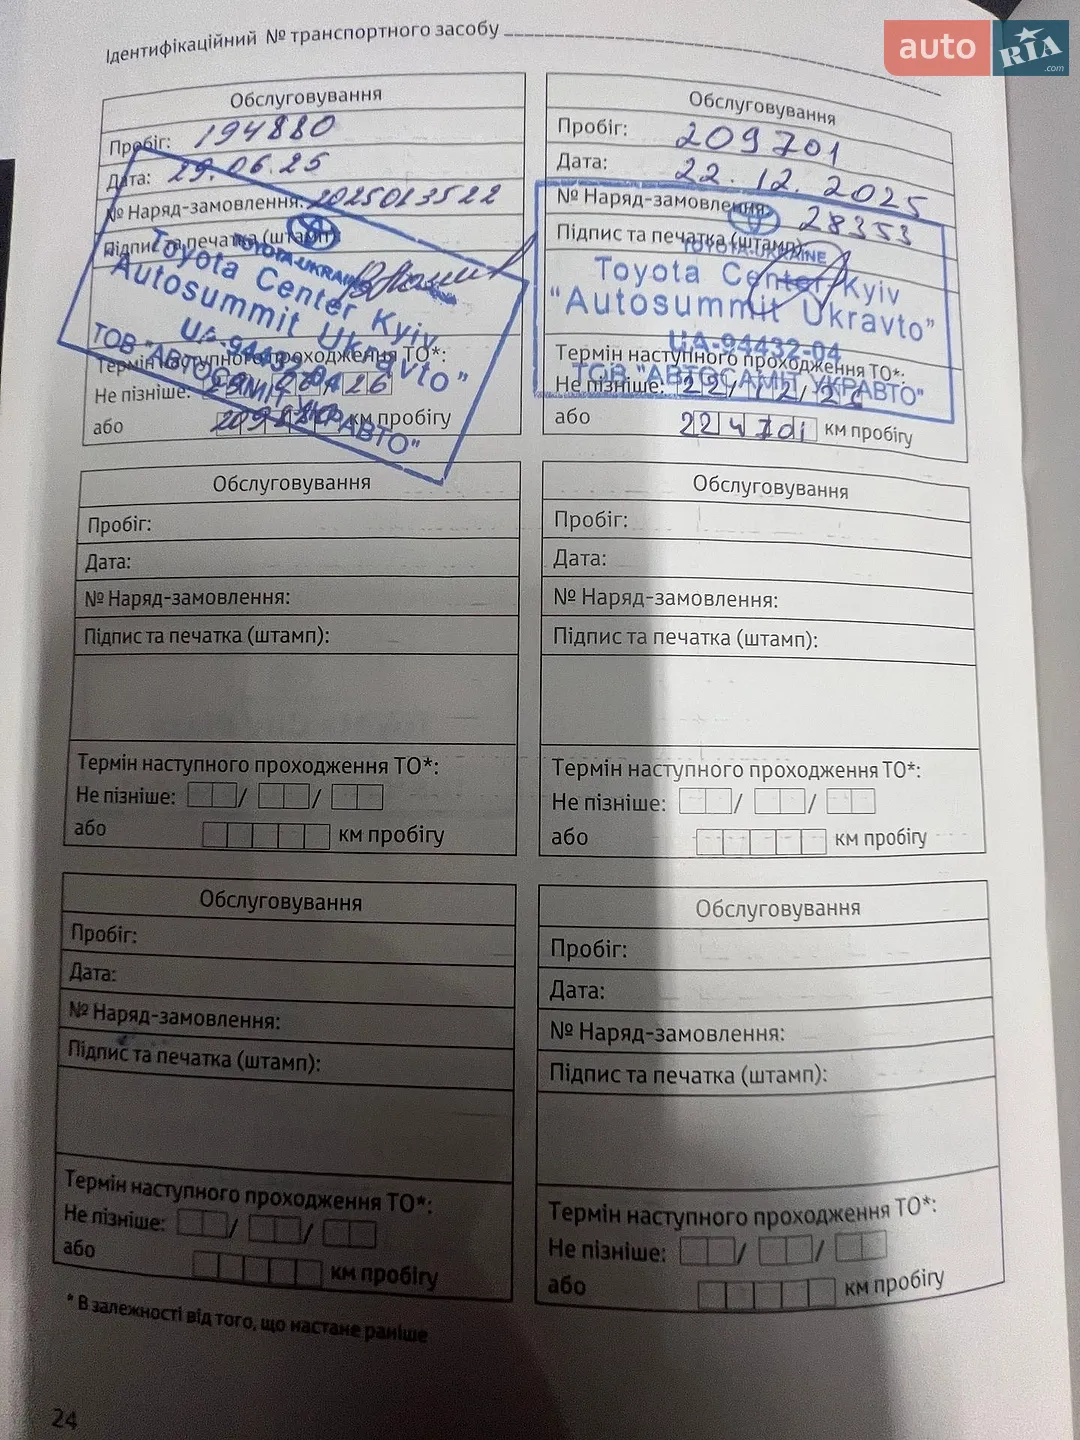 auto RIA .com
Ідентифікаційний № транспортного засобу
Обслуговування
Пробіг: 194880
Дата: 29.06.25
№ Наряд-замовлення: 2025013522
Підпис та печатка (штамп):
TOYOTA-UKRAINE
Toyota Center Kyiv
Autosummit Ukravto"
UA-94432-04
ТОВ "АВТОСАМІТ УКРАВТО"
Термін наступного проходження ТО*:
Не пізніше: 29/06/26
або 209880 км пробігу
Обслуговування
Пробіг: 209701
Дата: 22.12.2025
№ Наряд-замовлення: 28353
Підпис та печатка (штамп):
TOYOTA-UKRAINE
Toyota Center Kyiv
"Autosummit Ukravto"
UA-94432-04
ТОВ "АВТОСАМІТ УКРАВТО"
Термін наступного проходження ТО*:
Не пізніше: 22/12/26
або 224701 км пробігу
Обслуговування
Пробіг:
Дата:
№ Наряд-замовлення:
Підпис та печатка (штамп):
Термін наступного проходження ТО*:
Не пізніше: / /
або км пробігу
Обслуговування
Пробіг:
Дата:
№ Наряд-замовлення:
Підпис та печатка (штамп):
Термін наступного проходження ТО*:
Не пізніше: / /
або км пробігу
Обслуговування
Пробіг:
Дата:
№ Наряд-замовлення:
Підпис та печатка (штамп):
Термін наступного проходження ТО*:
Не пізніше: / /
або км пробігу
Обслуговування
Пробіг:
Дата:
№ Наряд-замовлення:
Підпис та печатка (штамп):
Термін наступного проходження ТО*:
Не пізніше: / /
або км пробігу
* В залежності від того, що настане раніше
24